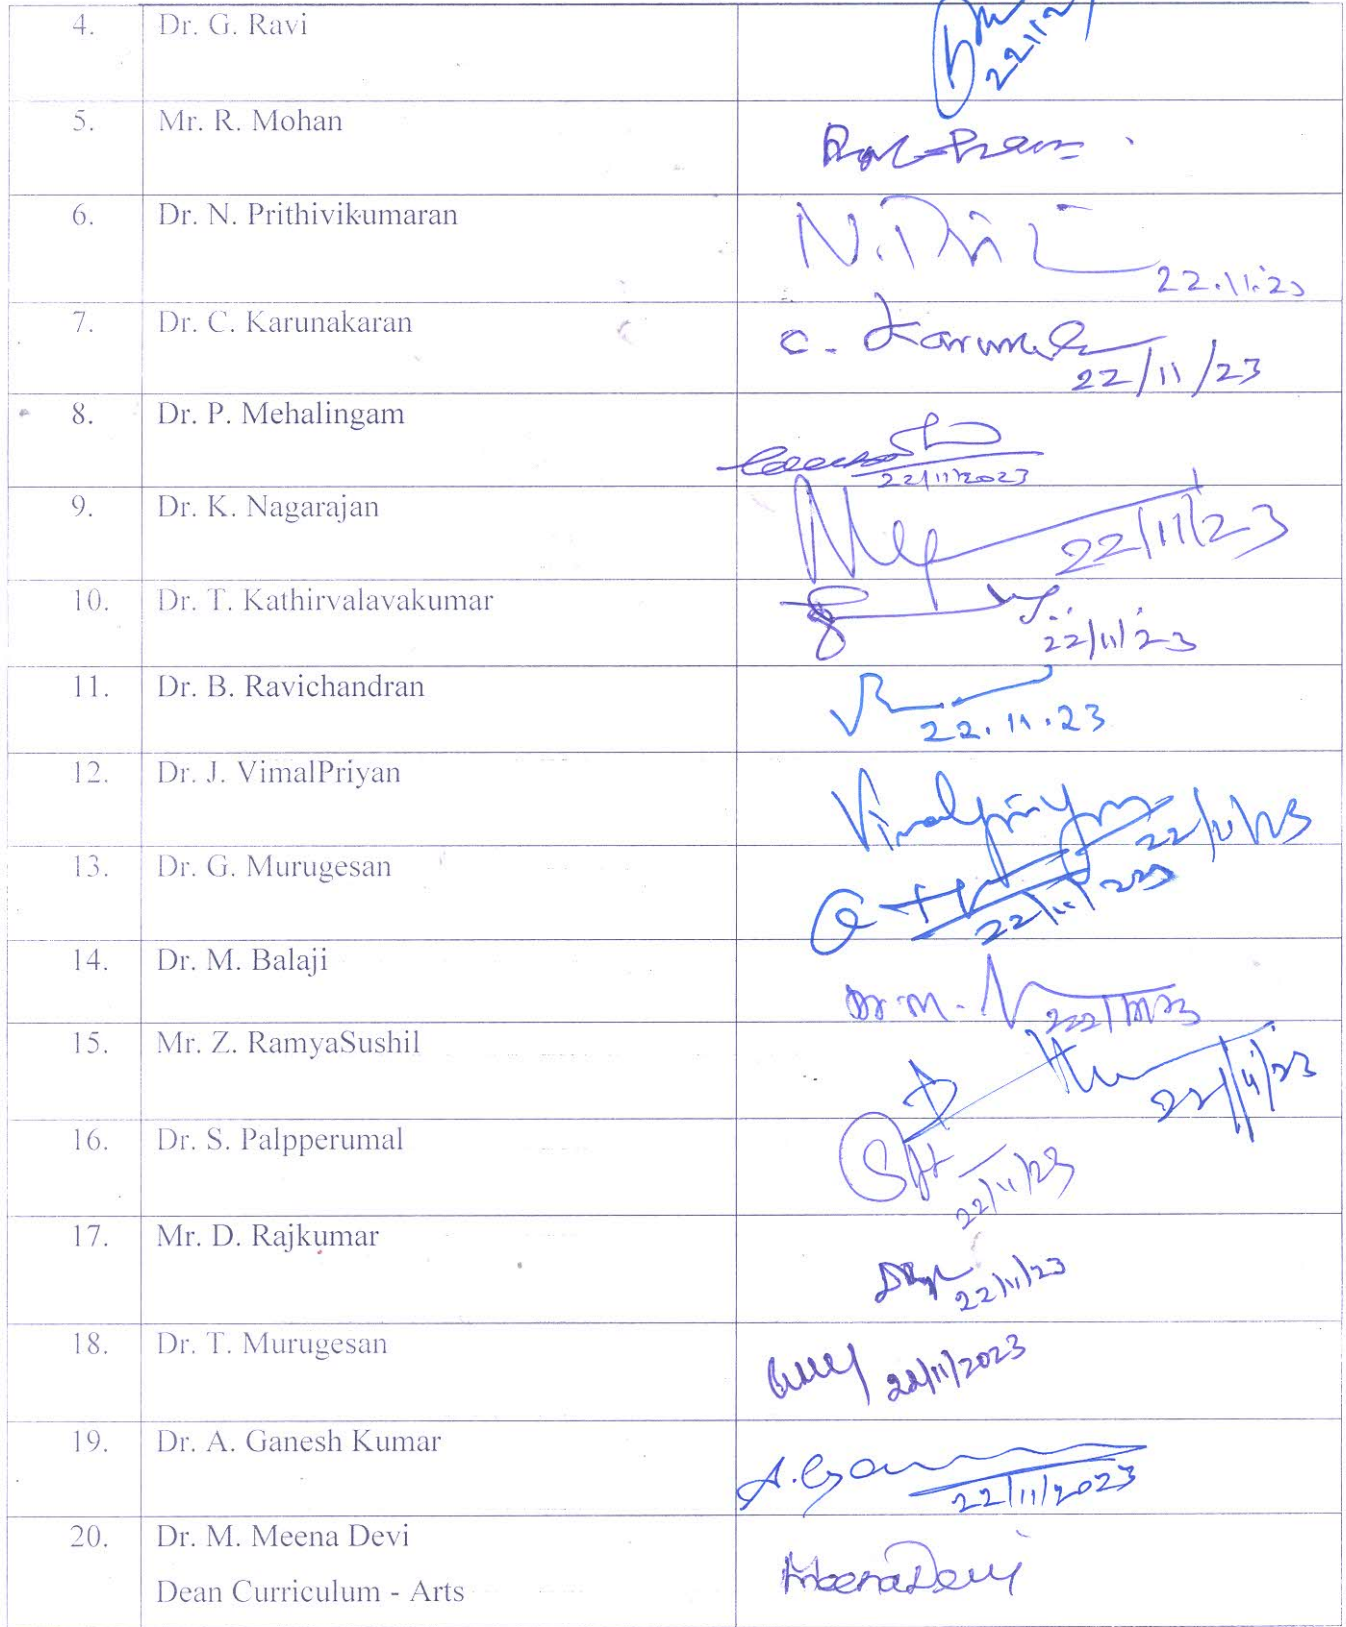 4. Dr. G. Ravi
5. Mr. R. Mohan
6. Dr. N. Prithivikumaran
22.11.23
7. Dr. C. Karunakaran C.
22/11/23
8. Dr. P. Mehalingam
22/11/2023
9. Dr. K. Nagarajan
22/11/23
10. Dr. T. Kathirvalavakumar
22/11/23
11. Dr. B. Ravichandran
22.11.23
12. Dr. J. VimalPriyan Vimalpriyan
22/11/23
13. Dr. G. Murugesan
22/11/223
14. Dr. M. Balaji Dr. M.
15. Mr. Z. RamyaSushil
22/11/23
16. Dr. S. Palpperumal
22/11/23
17. Mr. D. Rajkumar
22/11/23
18. Dr. T. Murugesan
22/11/2023
19. Dr. A. Ganesh Kumar
22/11/2023
20. Dr. M. Meena Devi
Dean Curriculum - Arts MeenaDevi